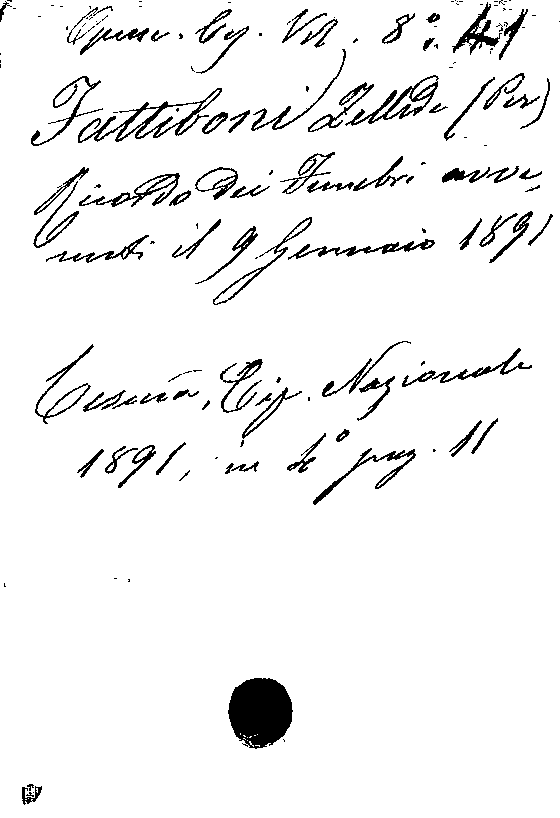 Opusc. Ces. Vol. 8º. 41
Fattiboni Zellide (Per)
Ricordo dei Funebri avve-
nuti il 9 Gennaio 1891
Cesena, Tip. Nazionale
1891, in 4º pag. 11